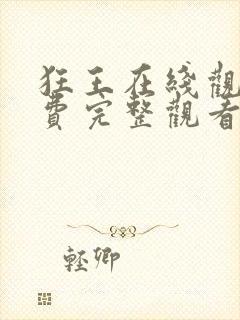 狂王在线觀
費完整觀看
輕卿